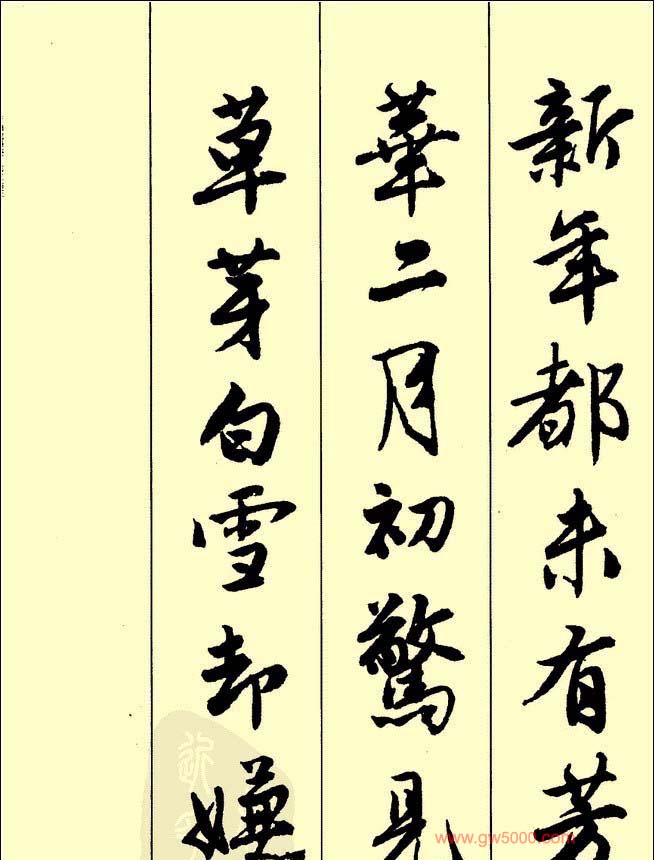 新年都未有芳
華二月初驚見
草芽白雪却嫌
www.gw5000.com